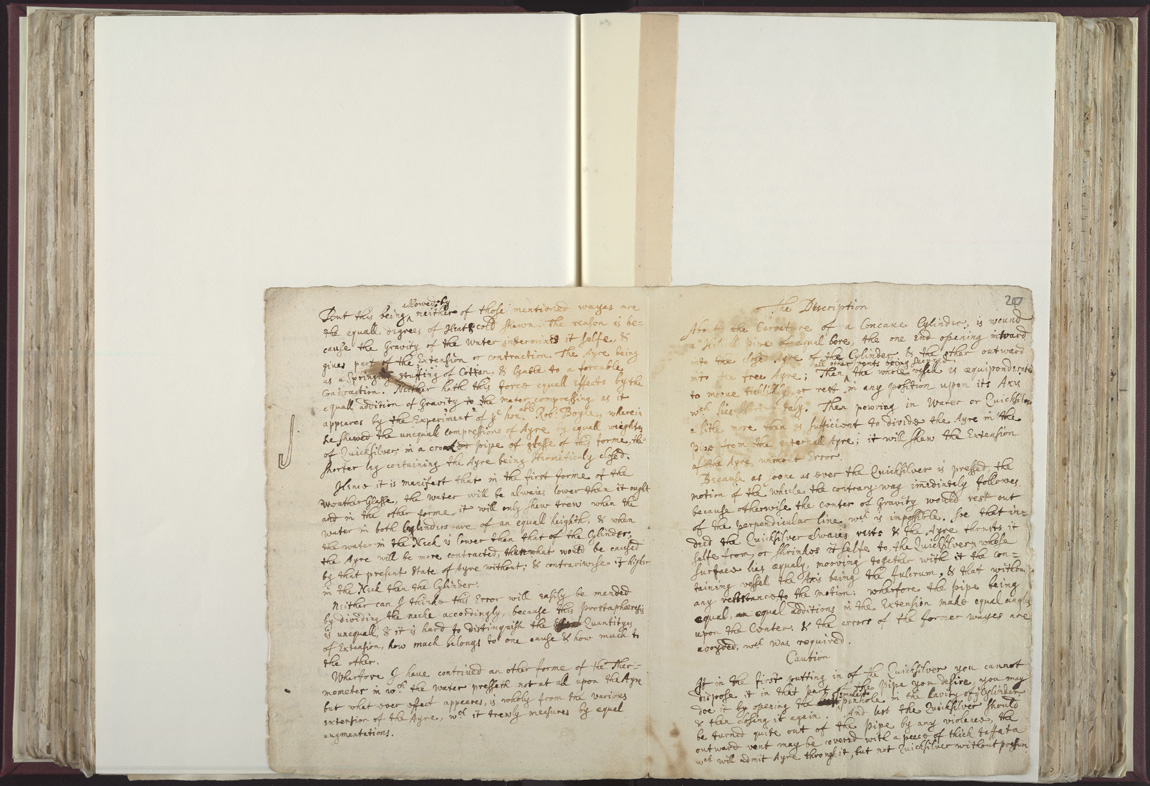 allowed, by
But this being neither of those mentioned wayes are
the equall degrees of Heat & cold shewn. The reason is be-
cause the Gravity of the Water intermixes it selfe, &
gives part of the Extension or contraction. The Ayre being
as a Spring stuffing of Cotton, & lyable to a forceable
Contraction. Neither hath this force equall effects by the
equall addition of Gravity to the water compressing as it
appeares by the Experiment of ye honble Robt Boyle, wherein
he shewed the unequall compressions of Ayre by equall weights
of Quicksilver in a crooked pipe of glasse of this forme, the
shorter leg containing the Ayre being Hermeticaly closed.
Hence it is manifest that in the first forme of the
Weather Glasse, the water will be alwaies lower then it ought
and in the other forme, it will only shew trew when the
water in both Cylinders are of an equall heighth, & when
the water in the Neck is lower than that of the Cylinder,
the Ayre will be more contracted, then what would be caused
by that present state of Ayre without; & contrariwise if higher
in the Neck than the Cylinder.
Neither can I thinke this Error will easily be mended
by dividing the necke accordingly, because this
is unequall & it is hard to distinguish the Quantityes
of Extension, how much belongs to one cause & how much to
the other.
Wherfore I have contrived an other forme of the Ther-
mometer in wch the water presseth not at all upon the Ayre
but what ever effect appeares, is wholy from the various
extension of the Ayre, wch it trewly measures by equal
augmentations.
207
The Description
About the Curvature of a Concave Cylinder, is wound
a pipe of small bore, the one end opening inward
into the close Ayre of the Cylinder, & the other outward
all other vents being
into the free Ayre; Then the whole vessell is equiponderated
to move or rest in any position upon its Axis
wch lies Then pouring in Water or Quicksilver
a little more than is sufficient to divide the Ayre in the
Pipe from the externall Ayre; it will shew the Extension
of the Ayre, without Error.
Because as soone as ever the Quicksilver is pressed the
motion of the whole the contrary way imediately followes,
because otherwise the center of Gravity would rest out
of the perpendicular line, wch is impossible. Soe that in-
deed the Quicksilver alwaies rests & the Ayre thrusts it
selfe from, or shrinkes it selfe to the Quicksilver, whose
surface lies equaly, mooving together with it the con-
taining vessel the Axis being the fulcrum, & that without
any resistance to the motion: wherfore the pipe being
equal, equal additions in the Extension make equal angles
upon the Center, & the errors of the former wayes are
avoyded, wch was required.
Caution
If in the first putting in of the Quicksilver you cannot
dispose it in that part of the Pipe you desire, you may
doe it by opening the smallest pinhole in the cavity of ye Cylinder
& then closing it again. And lest the Quicksilver should
be turned quite out of the pipe by any violence, the
outward vent may be covered with a peece of thick taffata
wch will admit Ayre through it, but not Quicksilver without